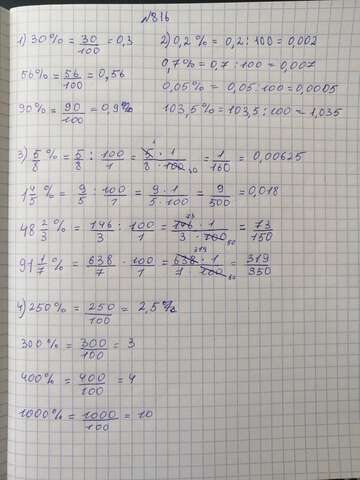 №816
1) 30% = 30/100 = 0,3
2) 0,2% = 0,2 : 100 = 0,002
56% = 56/100 = 0,56
0,7% = 0,7 : 100 = 0,007
0,05% = 0,05 : 100 = 0,0005
90% = 90/100 = 0,9%
103,5% = 103,5 : 100 = 1,035
3) 5/8 % = 5/8 : 100/1 = 5 · 1/8 · 100 20 = 1/160 = 0,00625
1 4/5 % = 9/5 : 100/1 = 9 · 1/5 · 100 = 9/500 = 0,018
48 2/3 % = 146/3 : 100/1 = 146 73 · 1/3 · 100 50 = 73/150
91 1/7 % = 638/7 · 100/1 = 638 319 · 1/7 100 50 = 319/350
4) 250% = 250/100 = 2,5%
300% = 300/100 = 3
400% = 400/100 = 4
1000% = 1000/100 = 10